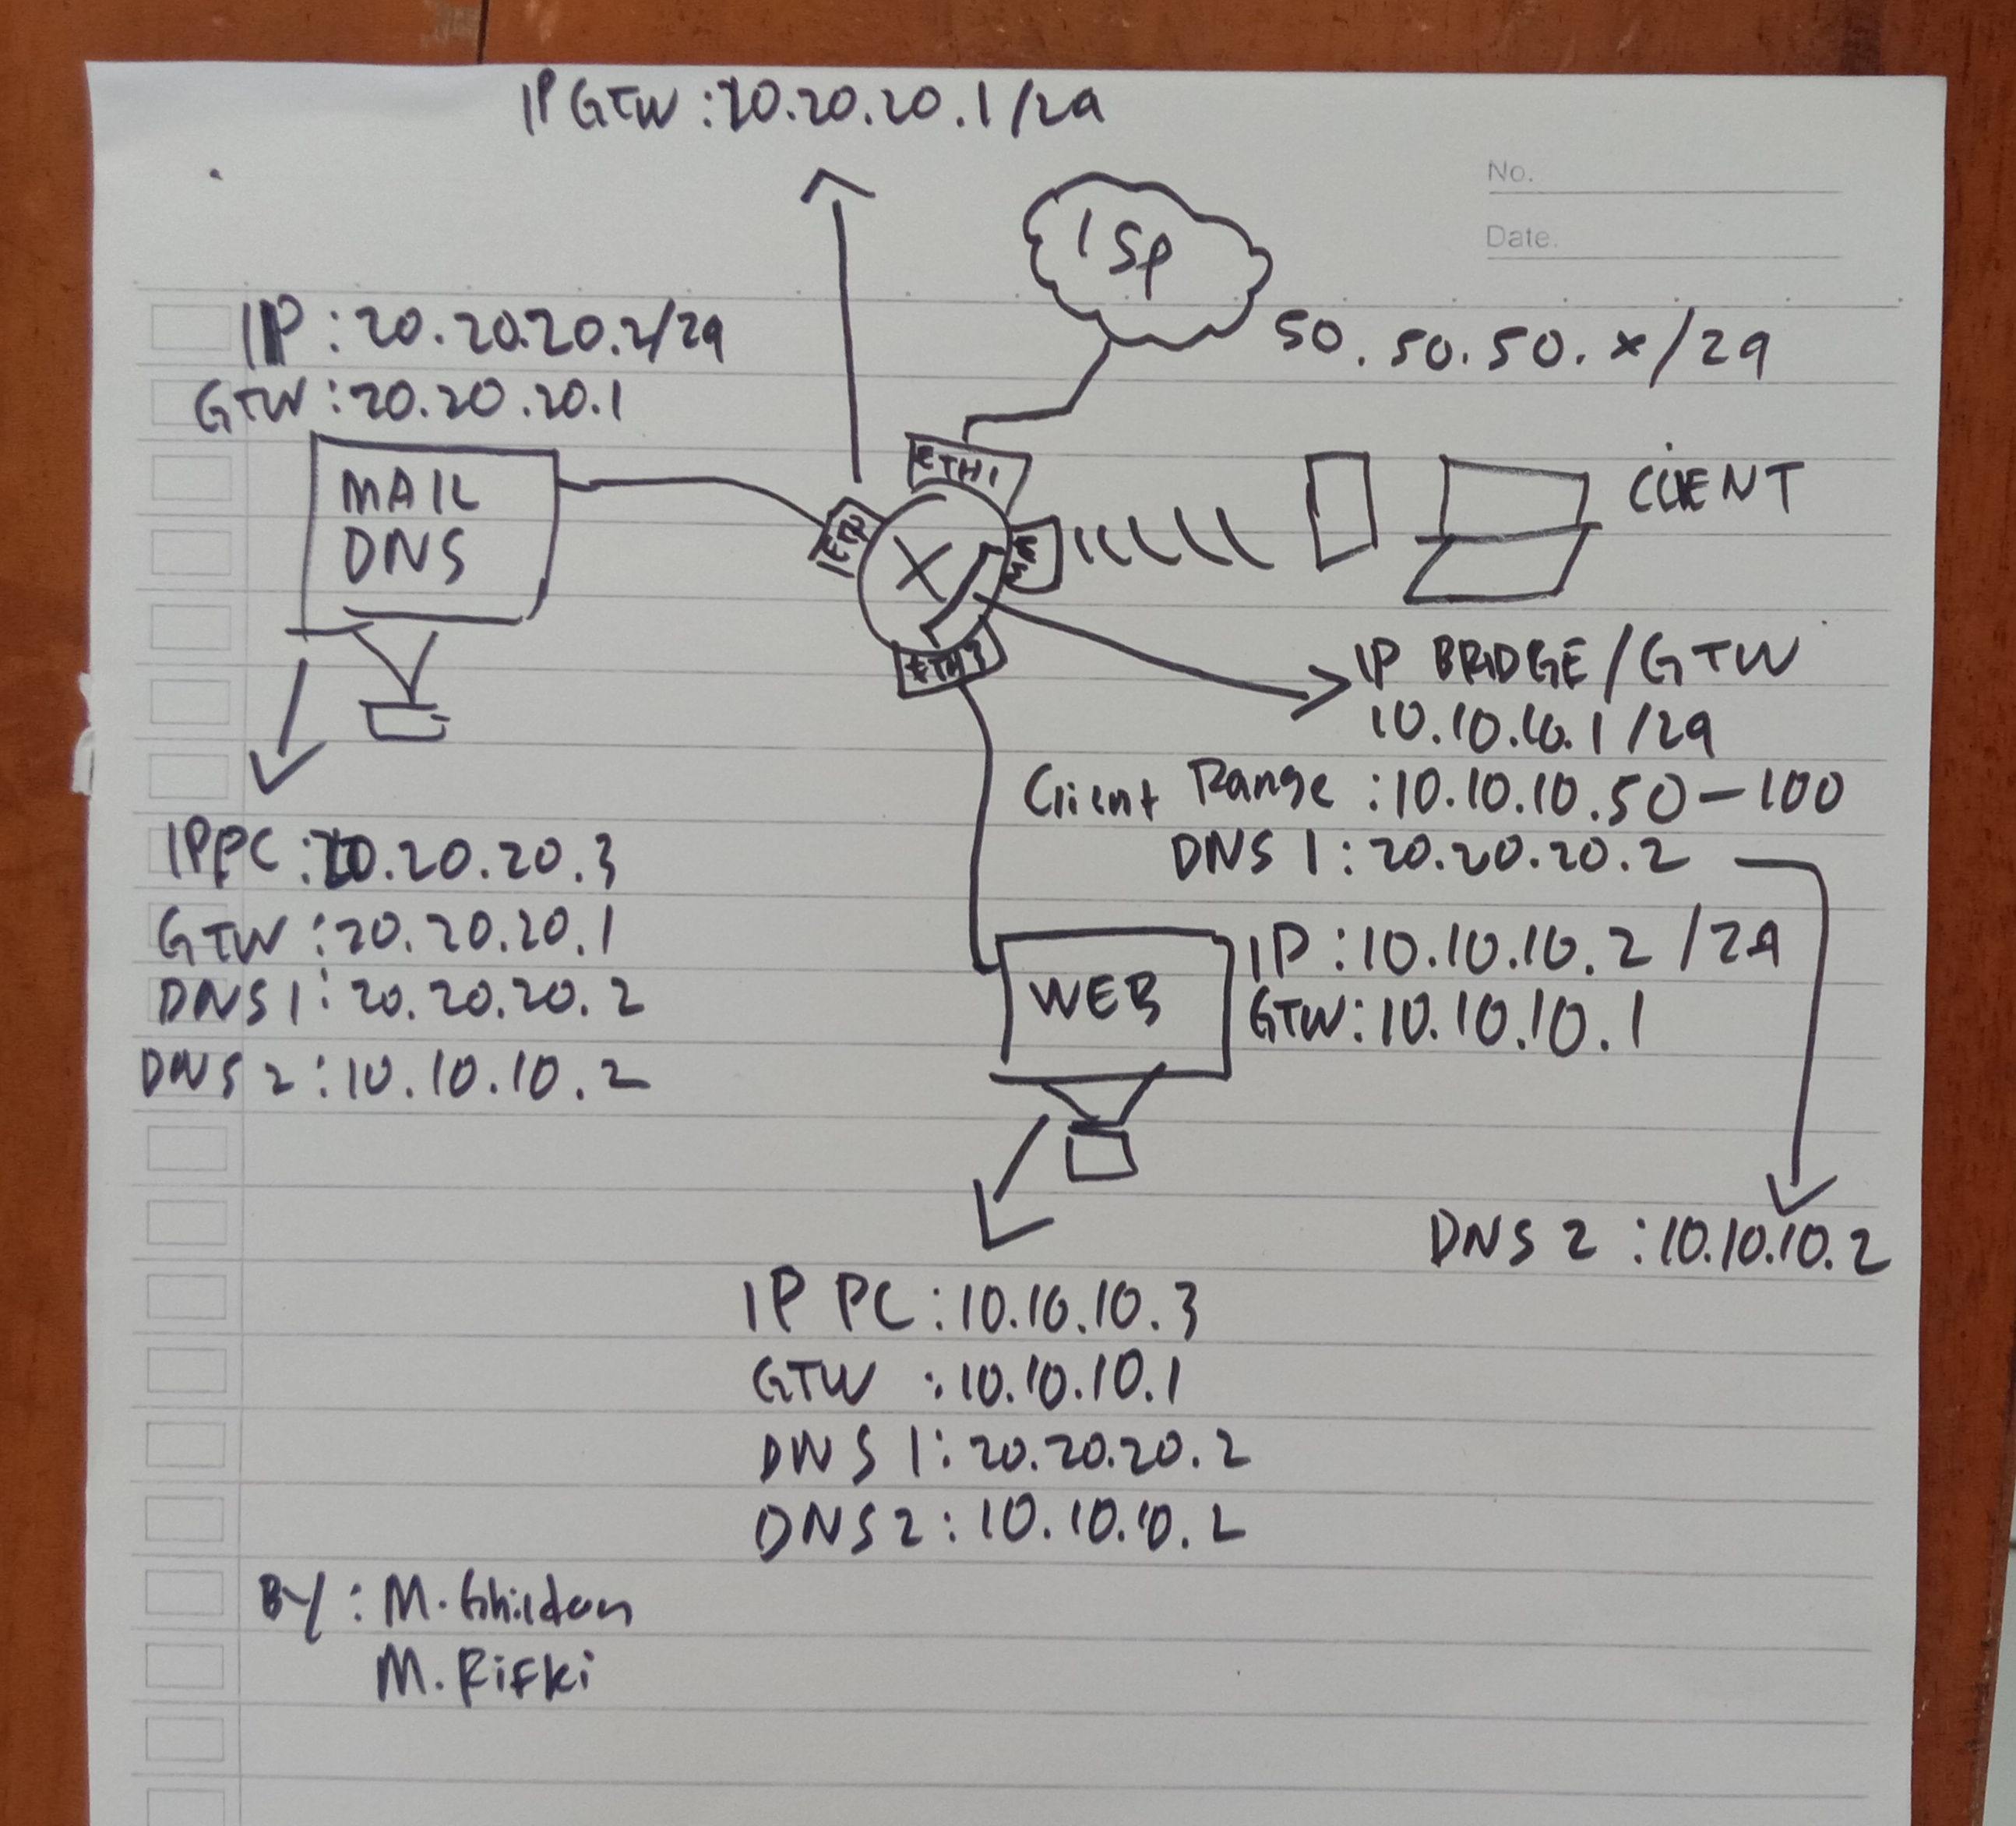 IP GTW : 20.20.20.1/24
No.
Date.
ISP
50.50.50.x/24
IP : 20.20.20.2/24
GTW : 20.20.20.1
MAIL
DNS
ETH1
ETH2
ETH3
CLIENT
IP BRIDGE/GTW
10.10.10.1/24
Client Range : 10.10.10.50-100
DNS 1 : 20.20.20.2
DNS 2 : 10.10.10.2
IP PC : 20.20.20.3
GTW : 20.20.20.1
DNS 1 : 20.20.20.2
DNS 2 : 10.10.10.2
WEB
IP : 10.10.10.2 /24
GTW : 10.10.10.1
IP PC : 10.10.10.3
GTW : 10.10.10.1
DNS 1 : 20.20.20.2
DNS 2 : 10.10.10.2
By : M. Ghildan
M. Rifki